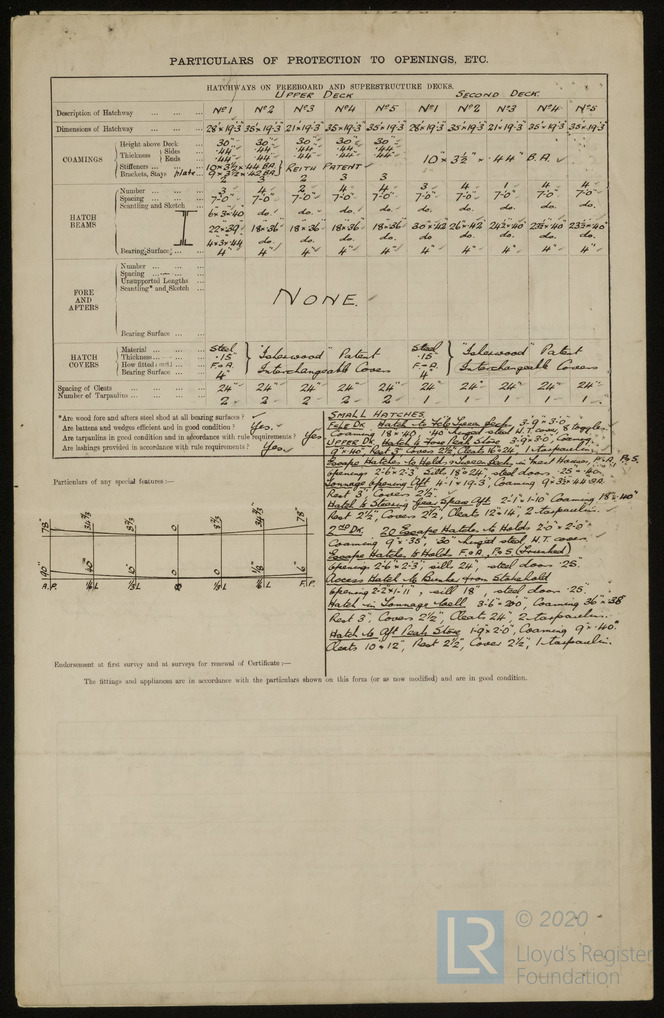 PARTICULARS OF PROTECTION TO OPENINGS, ETC.
HATCHWAYS ON FREEBOARD AND SUPERSTRUCTURE DECKS.
UPPER DECK SECOND DECK
Description of Hatchway ... ... ... No1 No2 No3 No4 No5 No1 No2 No3 No4 No5
Dimensions of Hatchway ... ... 28'×19'3 35×19'3 21×19'3 35×19'3 35×19'3 28×19'3 35×19'3 21×19'3 35×19'3 35×19'3
COAMINGS
Height above Deck ... 30" 30" 30" 30" 30"
Thickness { Sides ... .44" .44" .44" .44" .44"
{ Ends ... .44" .44" .44" .44" .44"
10" × 3½" × .44" B.A.
Stiffeners ... ... ... 10×3½×.44 B.A.
Brackets, Stays plate... 9×3½×.42 BA } KEITH PATENT
2 3 2 3 3
HATCH BEAMS
Number ... ... ... 3 4 2 4 4 3 4 1 4 4
Spacing ... ... ... 7'-0" 7'-0" 7'-0" 7'-0" 7'-0" 7'-0" 7'-0" 7'-0" 7'-0" 7'-0"
Scantling and Sketch ...
6×3×40 do. do. do. do. do. do. do. do. do.
22×39 18×36 18×36 18×36 18×36 30×42 26×42 24½×40 23½×40 23½×40
4×3×44 do. do. do. do. do. do. do. do. do.
Bearing Surface ... ... 4" 4" 4" 4" 4" 4" 4" 4" 4" 4"
FORE AND AFTERS
Number ... ... ...
Spacing ... ... ...
Unsupported Lengths ...
Scantling* and Sketch ...
NONE.
Bearing Surface ... ...
HATCH COVERS
Material ... ... ... Steel } "Isherwood" Patent Steel } "Isherwood" Patent
Thickness ... ... ... .15" .15"
How fitted ... ... F & A. Interchangeable Covers F & A. Interchangeable Covers
Bearing Surface ... 4" 4"
Spacing of Cleats ... ... ... 24" 24" 24" 24" 24" 24" 24" 24" 24" 24"
Number of Tarpaulins ... ... ... 2 2 2 2 2 1 1 1 1 1
*Are wood fore and afters steel shod at all bearing surfaces? ✓
Are battens and wedges efficient and in good condition? Yes.
Are tarpaulins in good condition and in accordance with rule requirements? Yes
Are lashings provided in accordance with rule requirements? Yes
SMALL HATCHES
Coaming 18"×.40 .40 hinged steel W.T. cover, 8 toggles.
UPPER DK. Hatch to Fore Peak Store 3'-9×3'0", Coaming
9"×.40" Rest 3" Covers 2½", Cleats 16×24", 1 tarpaulin.
opening 2'-6×2'3", Sills 18"×24", steel doors .25"×.40
Tonnage opening Aft 4'-1×19'3", Coaming 9×3½×.44 BA
Rest 3", Covers 2½".
Hatch to Steering Gear Space Aft 2'-1×1'-10" Coaming 18"×.40"
Rest 2½", Covers 2½", Cleats 12×14", 2 tarpaulin.
2nd DK. 20 Escape Hatches to Holds 2'-0"×2'-0"
Coaming 9"×.35", .30" hinged steel, W.T. cover
Escape Hatches to Holds F & A, P & S (Trunked)
opening 2'-6"×2'-3", sills 24", steel door .25.
Access Hatch to Bunker from Stokehold
opening 2'-2"×1'-11", sill 18", steel door .25"
Hatch in Tonnage Well 3'-6"×20'0", Coaming 36"×.38
Rest 3", Covers 2½", Cleats 24", 2 tarpaulin.
Hatch to Aft Peak Store 1'-9×2'-0", Coaming 9"×.40"
Cleats 10"×12", Rest 2½", Cover 2½", 1 tarpaulin.
Particulars of any special features:—
78" 34⅔ 8⅔ 0 8⅔ 34⅔ 78"
90" 40" 10" 0
A.P. ⅙L ⅓L ⅓L ⅙L F.P.
Endorsement at first survey and at surveys for renewal of Certificate:—
The fittings and appliances are in accordance with the particulars shown on this form (or as now modified) and are in good condition.
LR © 2020
Lloyd's Register
Foundation